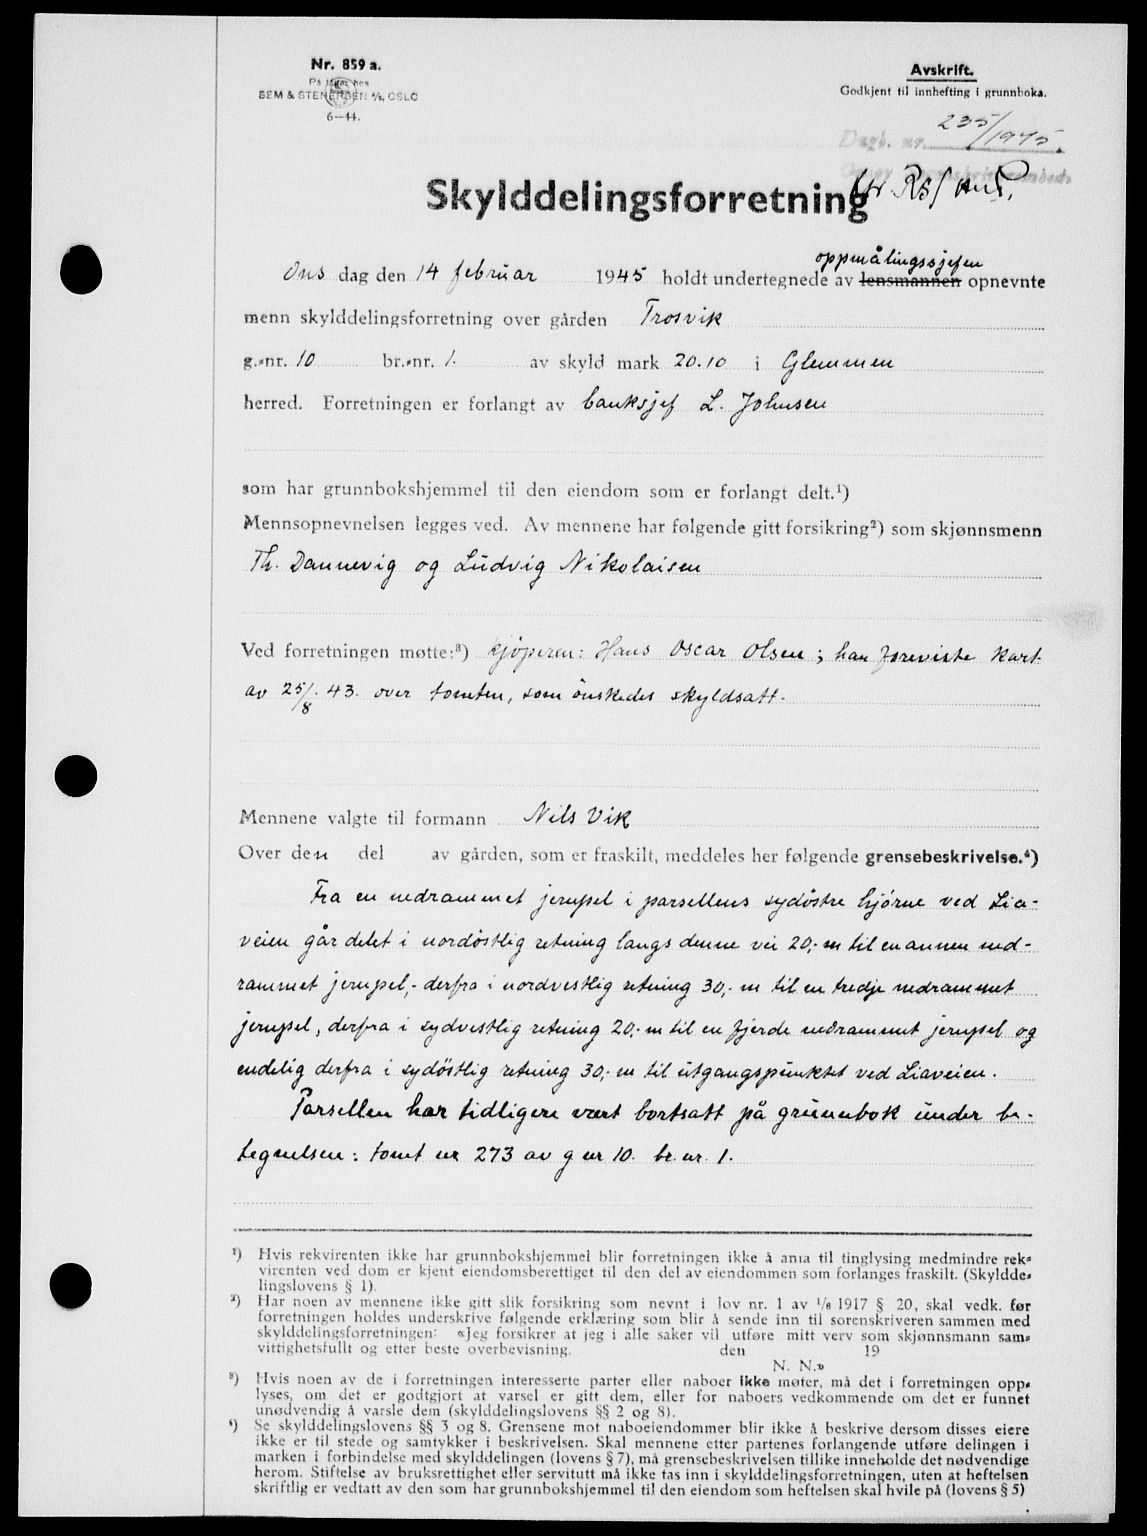 Nr. 859 a.
På lager hos
SEM & STENERSEN A/S, OSLO
6—44.
Avskrift.
Godkjent til innhefting i grunnboka.
Dagb. nr. 235/1945.
Skylddelingsforretning
Ons dag den 14 februar 1945 holdt undertegnede av lensmannen oppmålingssjefen opnevnte
menn skylddelingsforretning over gården Trosvik
g.-nr. 10 br.-nr. 1. av skyld mark 20.10 i Glemmen
herred. Forretningen er forlangt av banksjef L. Johnsen
som har grunnbokshjemmel til den eiendom som er forlangt delt.¹)
Mennsopnevnelsen legges ved. Av mennene har følgende gitt forsikring²) som skjønnsmenn
Th. Dannevig og Ludvig Nikolaisen
Ved forretningen møtte:³) kjøperen: Hans Oscar Olsen; han foreviste kart
av 25/8. 43. over tomten, som ønskedes skyldsatt.
Mennene valgte til formann Nils Vik
Over den del av gården, som er fraskilt, meddeles her følgende grensebeskrivelse.⁴)
Fra en nedrammet jernpel i parsellens sydöstre hjörne ved Lia-
veien går delet i nordöstlig retning langs denne vei 20,- m til en annen ned-
rammet jernpel,- derfra i nordvestlig retning 30,- m til en tredje nedrammet
jernpel, derfra i sydvestlig retning 20,- m til en fjerde nedrammet jernpel og
endelig derfra i sydöstlig retning 30,- m til utgangspunktet ved Liaveien.
Parsellen har tidligere vært bortsatt på grunnbok under be-
tegnelsen: tomt nr 273 av g nr 10. br. nr. 1.
¹) Hvis rekvirenten ikke har grunnbokshjemmel blir forretningen ikke å anta til tinglysing medmindre rek-
virenten ved dom er kjent eiendomsberettiget til den del av eiendommen som forlanges fraskilt. (Skyldde-
lingslovens § 1).
²) Har noen av mennene ikke gitt slik forsikring som nevnt i lov nr. 1 av 1/8 1917 § 20, skal vedk. før
forretningen holdes underskrive følgende erklæring som blir å sende inn til sorenskriveren sammen med
skylddelingsforretningen: «Jeg forsikrer at jeg i alle saker vil utføre mitt verv som skjønnsmann sam-
vittighetsfullt og etter beste overbevisning. den 19
N. N.»
³) Hvis noen av de i forretningen interesserte parter eller naboer ikke møter, må det i forretningen opp-
lyses, om det er godtgjort at varsel er gitt dem, eller for naboers vedkommende om det er funnet
unødvendig å varsle dem (skylddelingslovens §§ 2 og 8).
⁴) Se skylddelingslovens §§ 3 og 8. Grensene mot naboeiendommer blir ikke å beskrive dersom disses eiere
ikke er til stede og samtykker i beskrivelsen. Skal mennene etter partenes forlangende utføre delingen i
marken i forbindelse med skylddelingen (lovens § 7), må grensebeskrivelsen tillike inneholde det nødvendige
herom. Stiftelse av bruksrettighet eller servitutt må ikke tas inn i skylddelingsforretningen, uten at heftelsen
skriftlig er vedtatt av den som har grunnbokshjemmel til den eiendom som heftelsen skal hvile på (lovens § 5)